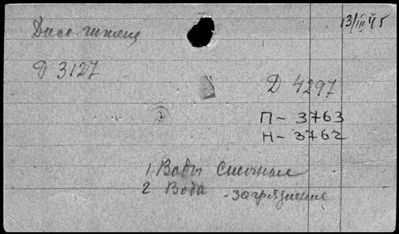 13/III 45
Дисс. гигиена
Д 3127
Д 4297
П - 3763
Н - 3762
1. Воды Сточные
2 Вода - загрязнение